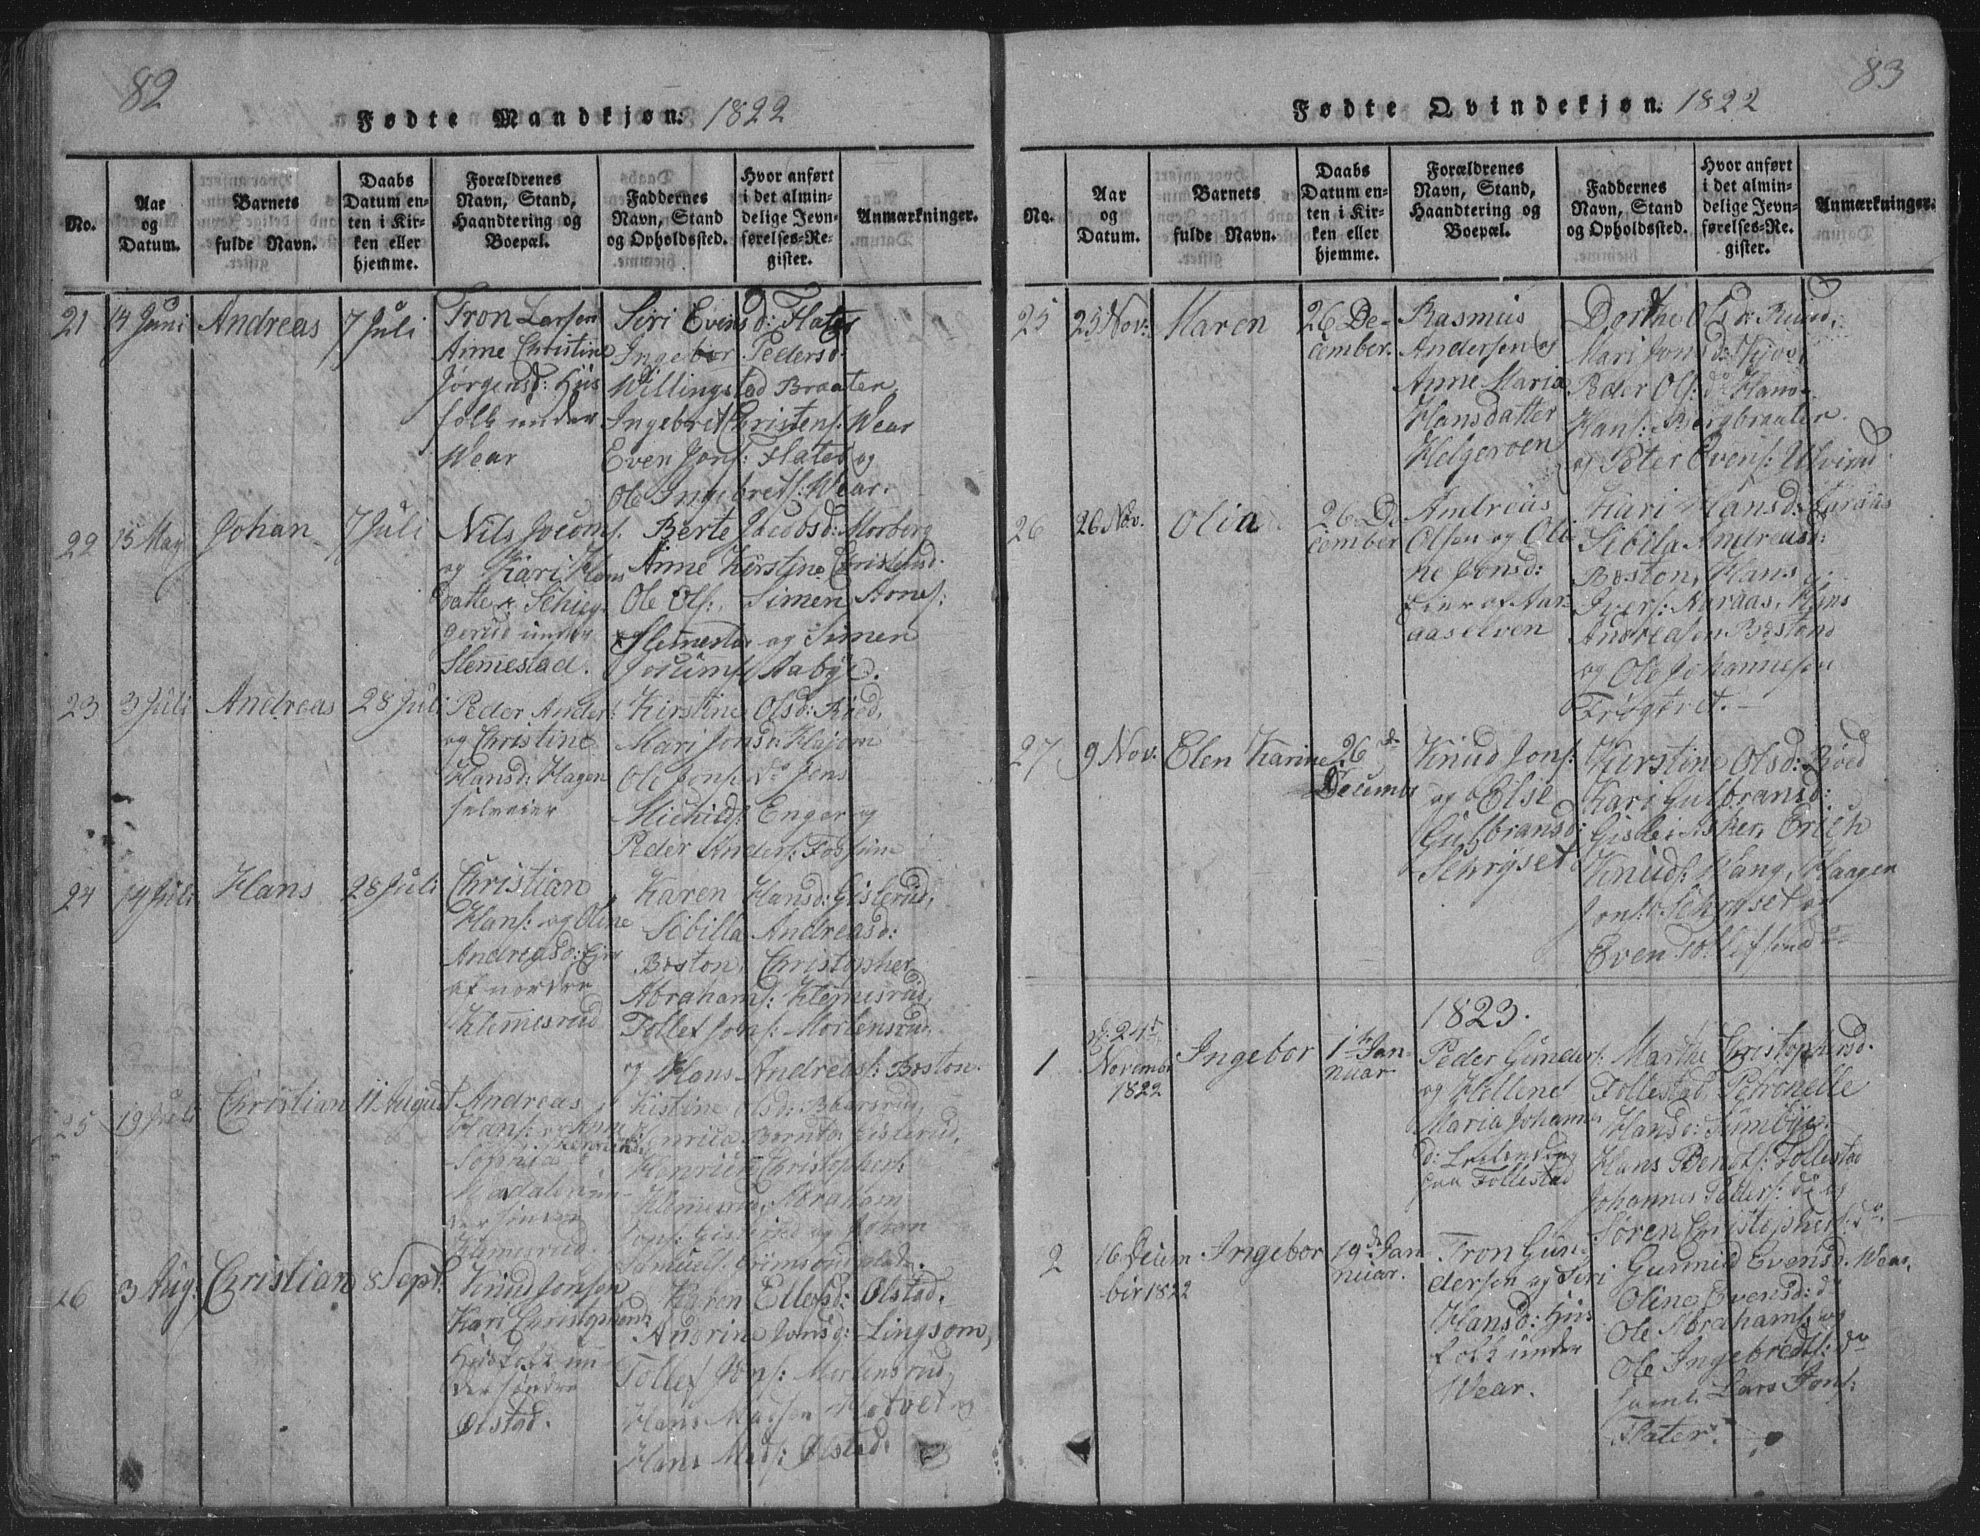 82
Fødte Mandkjøn. 1822
No.
Aar
og
Datum.
Barnets
fulde Navn.
Daabs
Datum en-
ten i Kir-
ken eller
hjemme.
Forældrenes
Navn, Stand,
Haandtering og
Boepæl.
Faddernes
Navn, Stand
og Opholdssted.
Hvor anført
i det almin-
delige Jevn-
førelses-Re-
gister.
Anmærkninger.
21 14 Juni Andreas 7 Juli
Tron Larsen
Anne Christine
Jørgensd: Hus
folk under
Wear
Siri Evensd: Flater
Ingebor Pedersd.
Willingstad Braaten,
Ingebret Christens: Wear
Even Jons: Flater og
Ole Ingebrets: Wear.
22 15 May Johan 7 Juli
Nils
og Kari Hans
datter
gerud under
Slemestad.
Berte Jacobsd: Morberg
Anne Kirstine Christensd.
Ole Ols: Simen
Slemestad og Simen
Aabye.
23 3 Juli Andreas 28 Juli
Peder Anders:
og Christine
Hansd: Hagen
selveier
Kirstine Olsd: Røed,
Mari Jonsd:
Ole Jons: do Jens
Enger og
Peder Anders: Fossum
24 14 Juli Hans 28 Juli
Christian
Hans: og Oline
Andreasd: Eier
af nordre
Klemesrud
Karen Hansd: Gisterud,
Sibilla Andreasd:
Boston, Christopher
Abrahams: Klemesrud,
Tollef Jons: Mortensrud,
og Hans Andreas: Boston.
25 19 Juli Christian 11 August
Andreas
Hans: og
Sophia
Madale un-
der søndre
Klemesrud.
Kistine Olsd:
Gisterud,
Henrich Christophers:
Klemesrud, Abraham
Jons: Gisterud og Johan
26 3 Aug: Christian 8 Sept.
Knud Jonsen
Kari
Husfolk un-
der søndre
Ølstad.
Karen Ellefsd: Ølstad,
Andrine Jonsd: Lingsom,
Tollef Jons: Mortensrud,
Hans Madsen Hotvet og
Hans Mads: Ølstad.
83
Fødte Qvindekjøn. 1822
No.
Aar
og
Datum.
Barnets
fulde Navn.
Daabs
Datum en-
ten i Kir-
ken eller
hjemme.
Forældrenes
Navn, Stand,
Haandtering og
Boepæl.
Faddernes
Navn, Stand
og Opholdssted.
Hvor anført
i det almin-
delige Jevn-
førelses-Re-
gister.
Anmærkninger.
25 25 Nov: Maren 26 De-
cember.
Rasmus
Andersen og
Anne Maria
Hansdatter
Helgeroen
Dorthe Olsd: Ruud,
Mari Jonsd:
Peder Ols: do Hans
Hans: Bergbraaten
og Peter Evens: Ulvirud
26 26 Nov. Olia 26 De
cember
Andreas
Olsen og Oli
ne Jonsd:
Eier af Aar-
aaselven
Kari Hansd: Aaraas
Sibila Andreasd:
Boston, Hans
Ivers: Aaraas, Hans
Andreasen Bøstond
og Ole Johannesen
Trøgeret.
27 9 Nov: Elen Karine 26 de
Decembr
Knud Jons:
og Else
Gulbransd:
Schryset
Kirstine Olsd: Røed
Kari Gulbransd:
Gisle i Asker, Erich
Knuds: Hang, Haagen
Jons: Schryset og
Even Tollefsen do
1823.
1 d: 24 t
Novembr
1822
Ingebor 1 te Jan-
nuar
Peder Gunders:
og Hellene
Maria Johanne
d:
paa Follestad
Marthe Christophersd.
Follestad, Petronelle
Hansd:
Hans Bendts: Follestad
Johannes Peders: do og
Søren Christophers: do.
2 16 Decem
ber 1822
Ingebor 19 de Jan
nuar.
Tron Gun-
dersen og Siri
Hansd: Hus
folk under
Wear.
Gunnild Evensd: Wear,
Oline Evensd: do
Ole Abrahams: og
Ole Ingebredts: do
samt Lars Jons:
Flater.